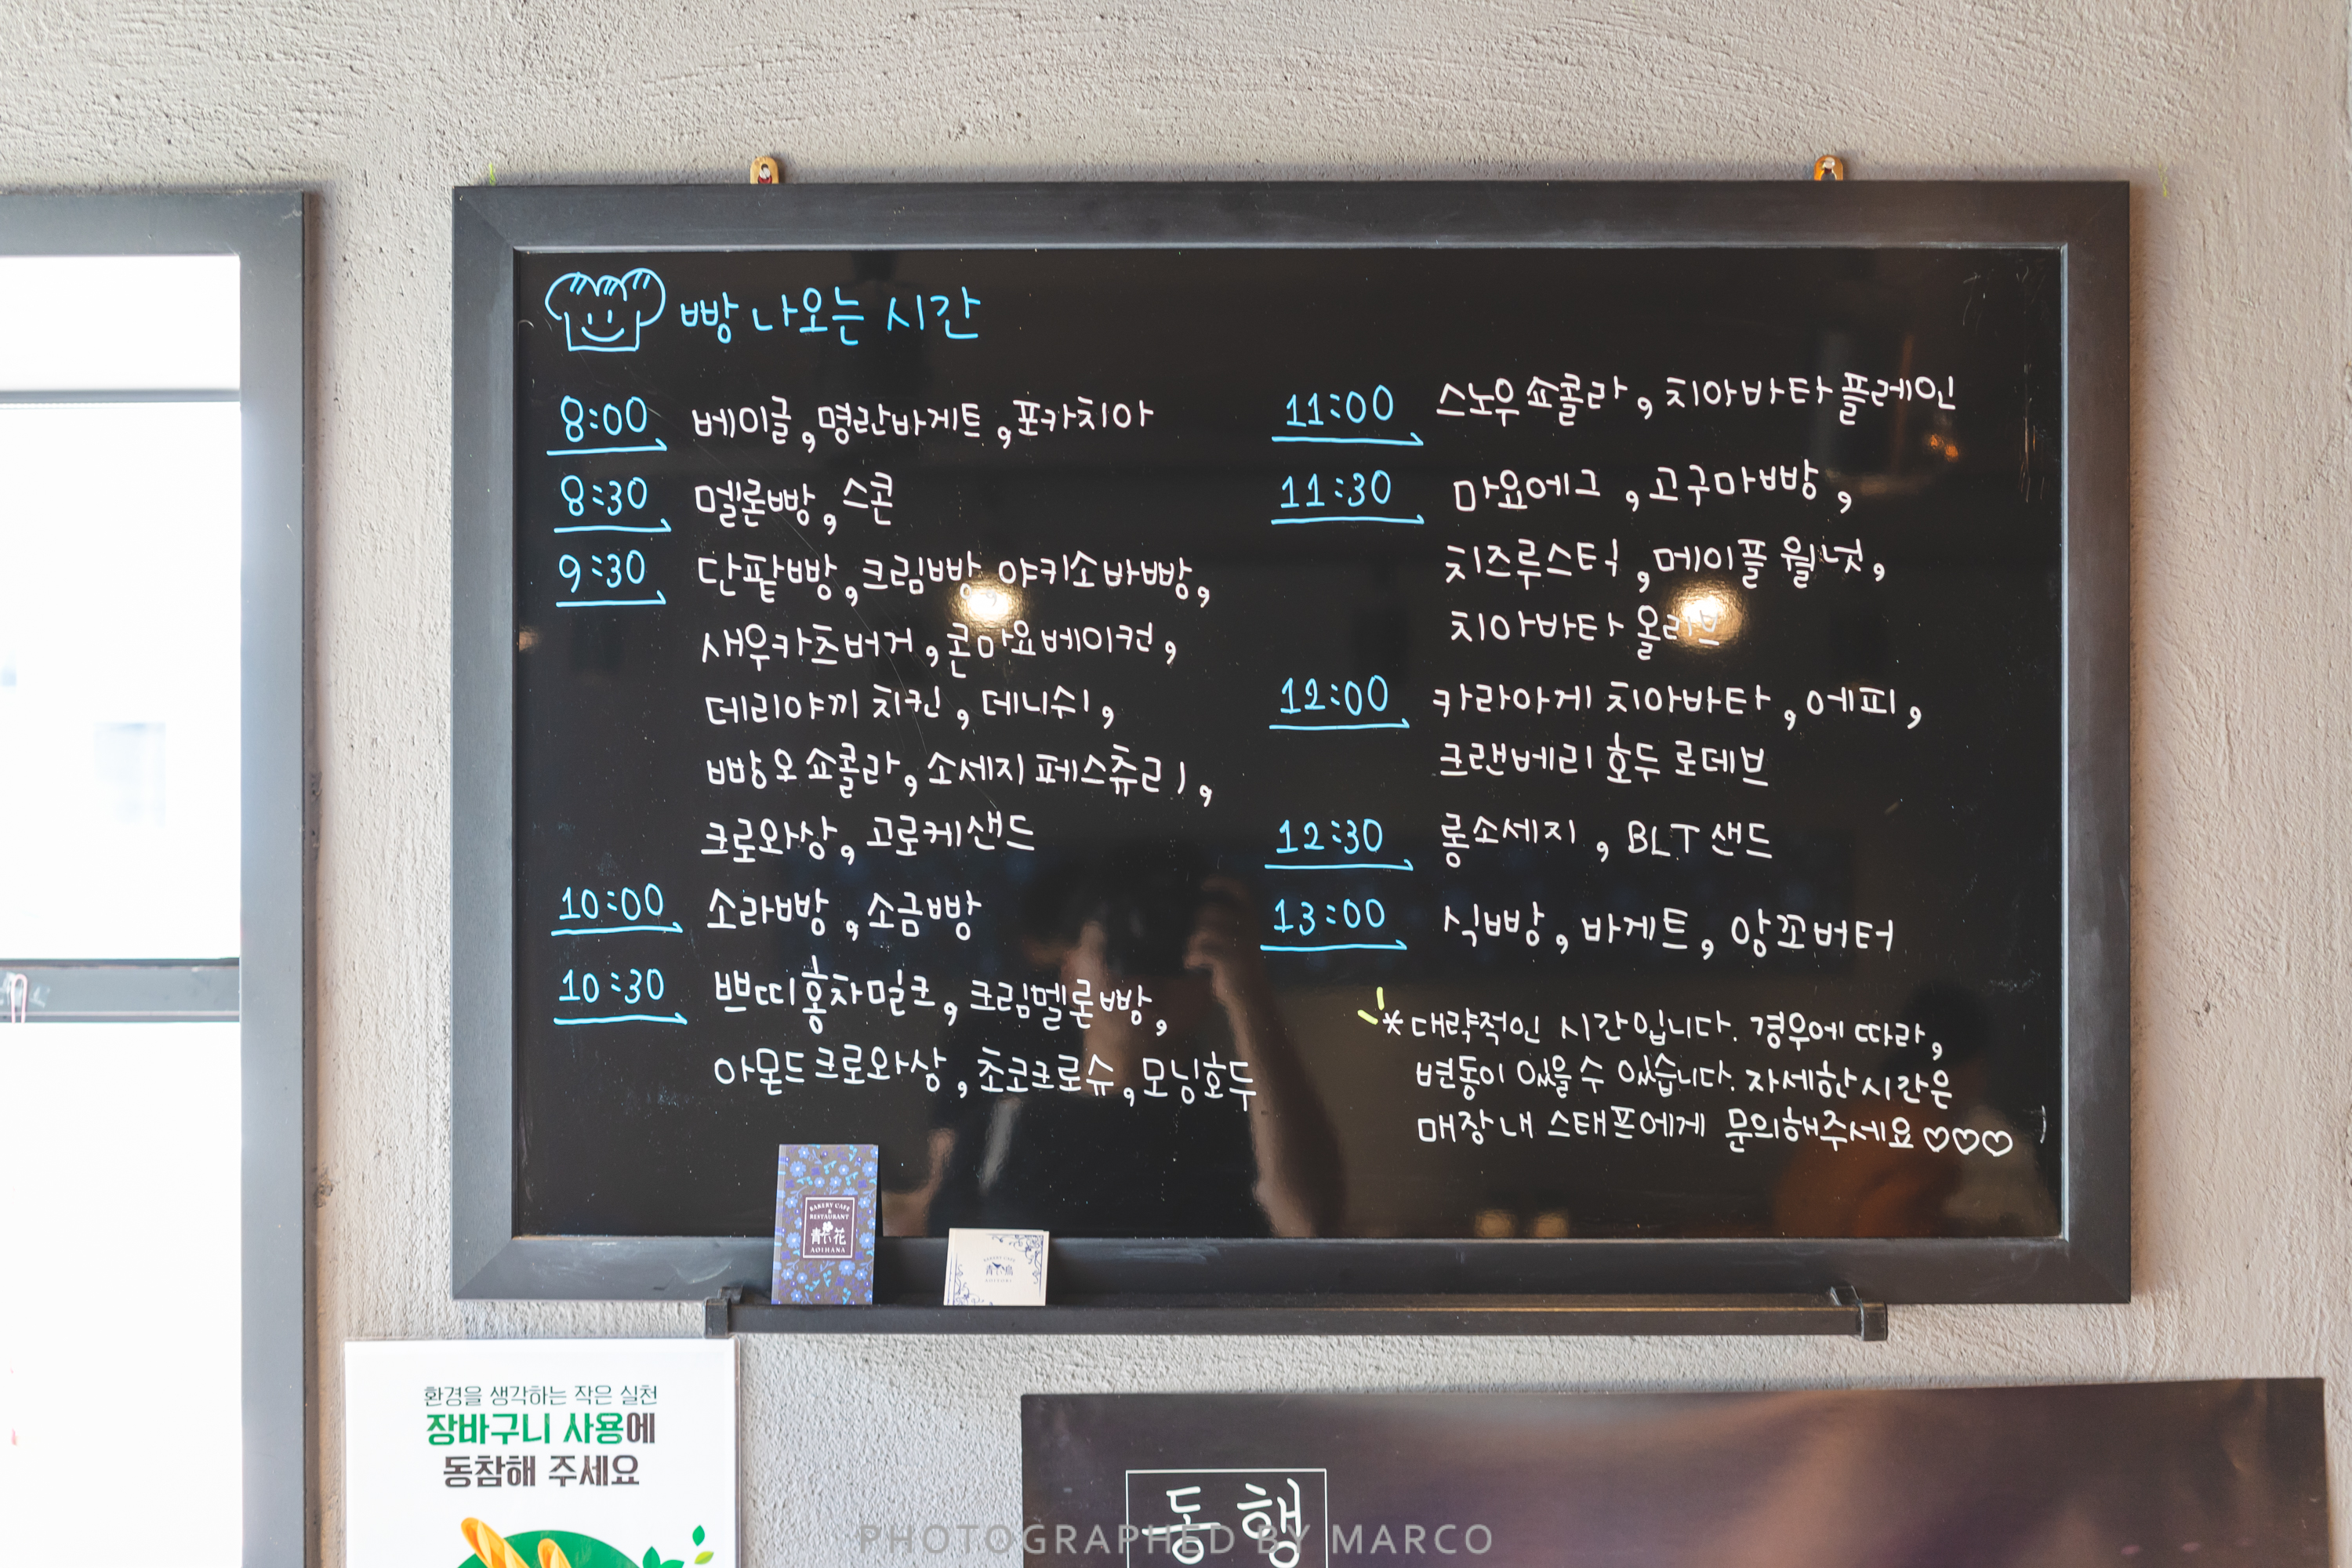 빵 나오는 시간
8:00 베이글, 명란바게트, 포카치아
8:30 멜론빵, 스콘
9:30 단팥빵, 크림빵, 야키소바빵,
새우카츠버거, 콘마요베이컨,
데리야끼 치킨, 데니쉬,
빵오쇼콜라, 소세지 페스츄리,
크로와상, 고로케샌드
10:00 소라빵, 소금빵
10:30 쁘띠홍차밀크, 크림멜론빵,
아몬드크로와상, 초코크로슈, 모닝호두
11:00 스노우 쇼콜라, 치아바타 플레인
11:30 마요에그, 고구마빵,
치즈루스틱, 메이플 월넛,
치아바타 올리브
12:00 카라아게 치아바타, 에피,
크랜베리 호두 로데브
12:30 롱소세지, BLT 샌드
13:00 식빵, 바게트, 앙꼬버터
*대략적인 시간입니다. 경우에 따라,
변동이 있을 수 있습니다. 자세한 시간은
매장 내 스태프에게 문의해주세요♡♡♡
BAKERY CAFE
&
RESTAURANT
青い花
AOIHANA
BAKERY CAFE
青い鳥
환경을 생각하는 작은 실천
장바구니 사용에
동참해 주세요
동행
PHOTOGRAPHED BY MARCO